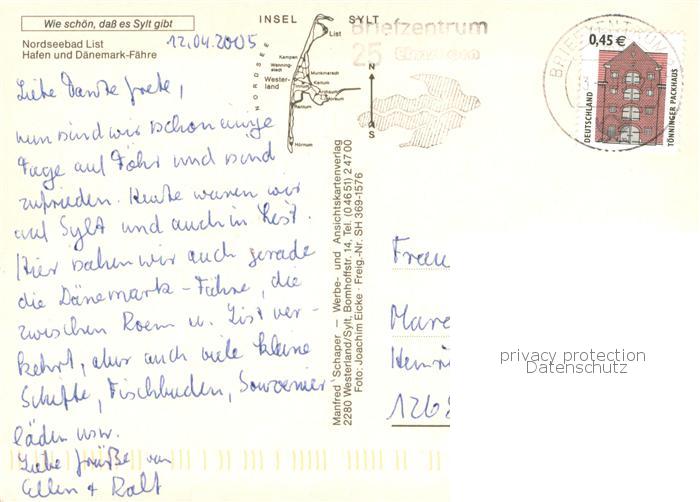 Wie schön, daß es Sylt gibt
Nordseebad List
Hafen und Dänemark-Fähre
12.04.2005
INSEL SYLT
List
NORDSEE
Kampen
Wenning-
stadt
Wester-
land
Munkmarsch
Keitum
Tinnum
Archsum
Morsum
Rantum
Hörnum
N
S
Briefzentrum
25
BRIEFZENTRUM
0,45 €
DEUTSCHLAND
TÖNNINGER PACKHAUS
Liebe Tante Grete,
nun sind wir schon einige
Tage auf Föhr und sind
zufrieden. Heute waren wir
auf Sylt und auch in List.
Hier sahen wir auch gerade
die Dänemark-Fähre, die
zwischen Roem u. List ver-
kehrt, aber auch viele kleine
Schiffe, Fischbuden, Souvenier-
läden usw.
Liebe Grüße von
Ellen + Ralf
Manfred Schaper — Werbe- und Ansichtskartenverlag
2280 Westerland/Sylt, Bomhoffstr. 14, Tel. (0 46 51) 2 47 00
Foto: Joachim Eicke · Freig.-Nr. SH 369-1576
Frau
Mare
Heinri
1268
privacy protection
Datenschutz